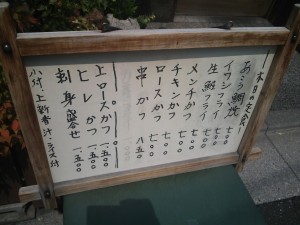 本日の定食
あこう鯛焼 七〇〇
イワシフライ 七〇〇
生鮭フライ 七〇〇
メンチかつ 七〇〇
チキンかつ 七〇〇
ロースかつ 七〇〇
串かつ 八五〇
上ロースかつ 一、五〇〇
ヒレかつ 一、五〇〇
刺身盛合せ 一、五〇〇
小付、上新香、汁、ライス付